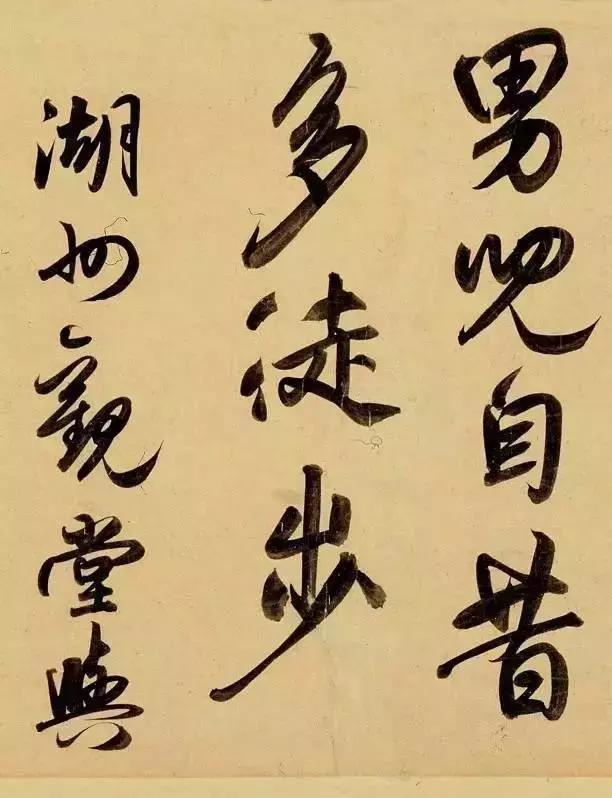 男兒自昔
多徒步
湖州觀堂